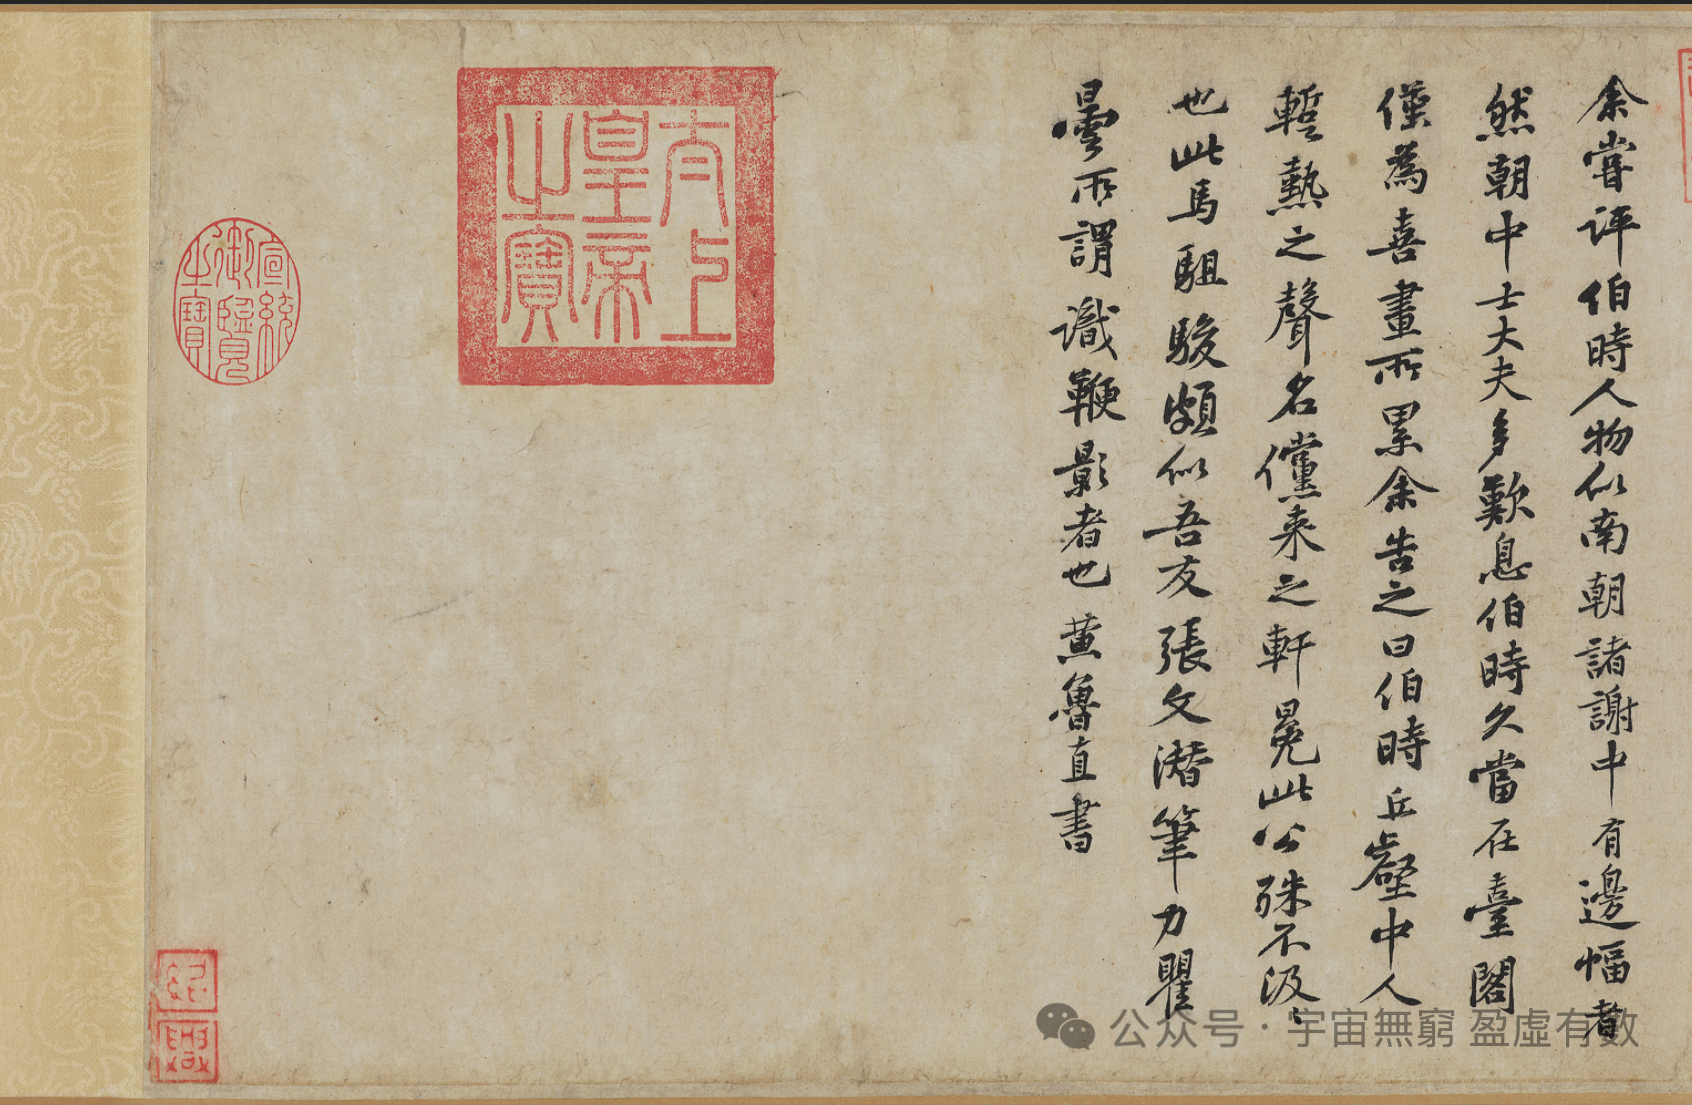 余嘗評伯時人物似南朝諸謝中有邊幅者
然朝中士大夫多歎息伯時久當在臺閣
僅為喜畫所累余告之曰伯時丘壑中人
暫熱之聲名儻来之軒冕此公殊不汲〻
也此馬駔駿頗似吾友張文潛筆力瞿
曇所謂識鞭影者也黄魯直書
太上
皇帝
之寶
宣統
御覽
之寶
紹
興
公众号 · 宇宙無窮 盈虛有数